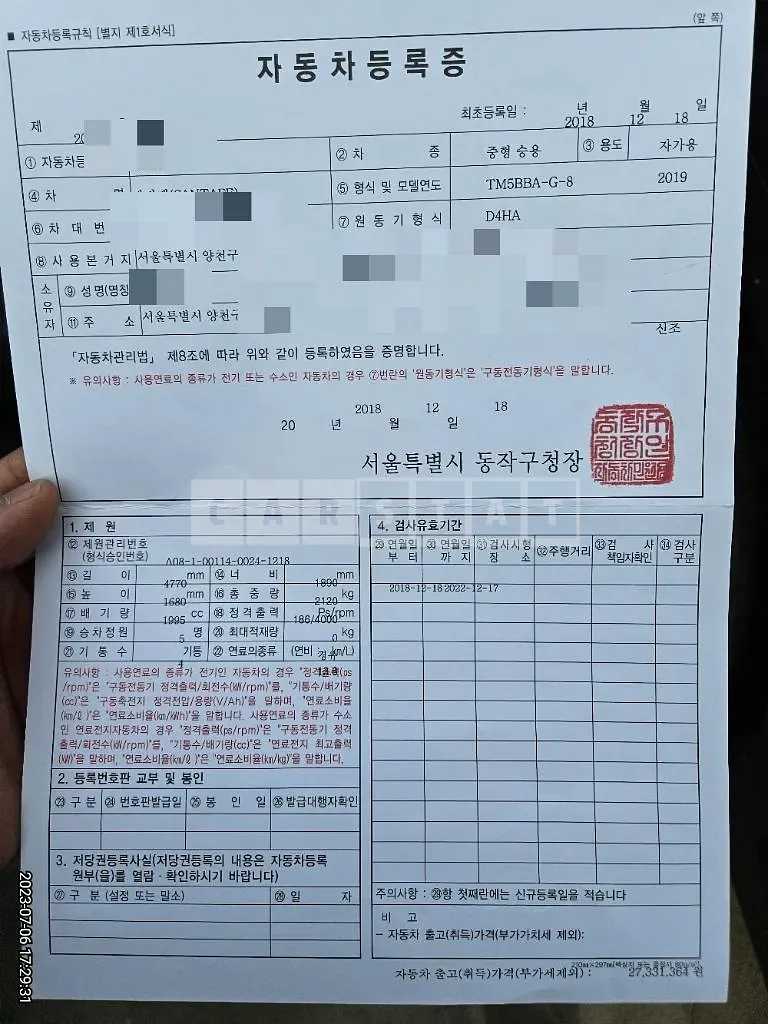 ■ 자동차등록규칙 [별지 제1호서식]
(앞 쪽)
자동차등록증
최초등록일 : 년 월 일
2018 12 18
제
① 자동차등
② 차 종 중형 승용 ③ 용도 자가용
④ 차
⑤ 형식 및 모델연도 TM5BBA-G-8 2019
⑥ 차 대 번
⑦ 원 동 기 형 식 D4HA
⑧ 사 용 본 거 지 서울특별시 양천구
소유자
⑨ 성명(명칭
⑪ 주 소 서울특별시 양천구
신조
「자동차관리법」 제8조에 따라 위와 같이 등록하였음을 증명합니다.
※ 유의사항 : 사용연료의 종류가 전기 또는 수소인 자동차의 경우 ⑦번란의 '원동기형식'은 '구동전동기형식'을 말합니다.
2018 12 18
20 년 월 일
서울특별시 동작구청장
CARSTAT
1. 제 원
⑫ 제원관리번호
(형식승인번호) A08-1-00114-0024-1218
⑬ 길 이 4770 mm ⑭ 너 비 1890 mm
⑮ 높 이 1680 mm ⑯ 총 중 량 2120 kg
⑰ 배 기 량 1995 cc ⑱ 정격출력 186/4000 Ps/rpm
⑲ 승차정원 5 명 ⑳ 최대적재량 0 kg
㉑ 기 통 수 4 기통 ㉒ 연료의종류 경유 (연비 : km/L)
유의사항 : 사용연료의 종류가 전기인 자동차의 경우 "정격출력(ps
/rpm)"은 "구동전동기 정격출력/회전수(kW/rpm)"를, "기통수/배기량
(cc)"은 "구동축전지 정격전압/용량(V/Ah)"을 말하며, "연료소비율
(km/ℓ)"은 "연료소비율(km/kWh)"을 말합니다. 사용연료의 종류가 수소
인 연료전지자동차의 경우 "정격출력(ps/rpm)"은 "구동전동기 정격
출력/회전수(kW/rpm)"를, "기통수/배기량(cc)"은 "연료전지 최고출력
(kW)"을 말하며, "연료소비율(km/ℓ)"은 "연료소비율(km/kg)"을 말합니다.
2. 등록번호판 교부 및 봉인
㉓ 구 분 ㉔ 번호판발급일 ㉕ 봉 인 일 ㉖ 발급대행자확인
3. 저당권등록사실(저당권등록의 내용은 자동차등록
원부(을)를 열람ㆍ확인하시기 바랍니다)
㉗ 구 분 (설정 또는 말소) ㉘ 일 자
4. 검사유효기간
㉙ 연월일 부 터 ㉚ 연월일 까 지 ㉛ 검사시행 장 소 ㉜ 주행거리 ㉝ 검 사 책임자확인 ㉞ 검사 구분
2018-12-18 2022-12-17
주의사항 : ㉙항 첫째란에는 신규등록일을 적습니다
비 고
- 자동차 출고(취득)가격(부가가치세 제외):
자동차 출고(취득)가격(부가세제외) : 27,331,364 원
2023-07-06 17:29:31